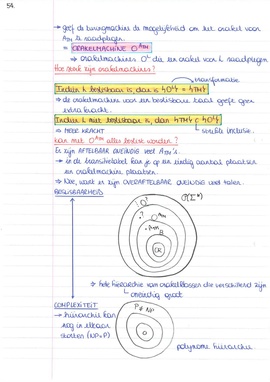 54.
→ geef de turingmachine de mogelijkheid om het orakel voor
A_TM te raadplegen
= ORAKELMACHINE O^ATM
→ orakelmachines O^L die een orakel voor L raadplegen
Hoe sterk zijn orakelmachines?
Indien L beslisbaar is, dan is
→ de orakelmachine voor een beslisbare taal geeft geen
extra kracht.
Indien L niet beslisbaar is, dan
→ MEER KRACHT strikte inclusie.
Kan met O^ATM alles beslist worden?
Er zijn AFTELBAAR ONEINDIG veel A_TM's.
→ in de transitietabel kan je op een eindig aantal plaatsen
een orakelmachine plaatsen.
→ Nee, want er zijn OVERAFTELBAAR ONEINDIG veel talen.
BESLISBAARHEID
P(Σ*)
?
A_TM
R
hele hiërarchie van orakelklassen die verschillend zijn
oneindig groot
COMPLEXITEIT
→ hiërarchie kan
nog in elkaar
storten (NP=P)
P ⊆ NP
polynome hiërarchie